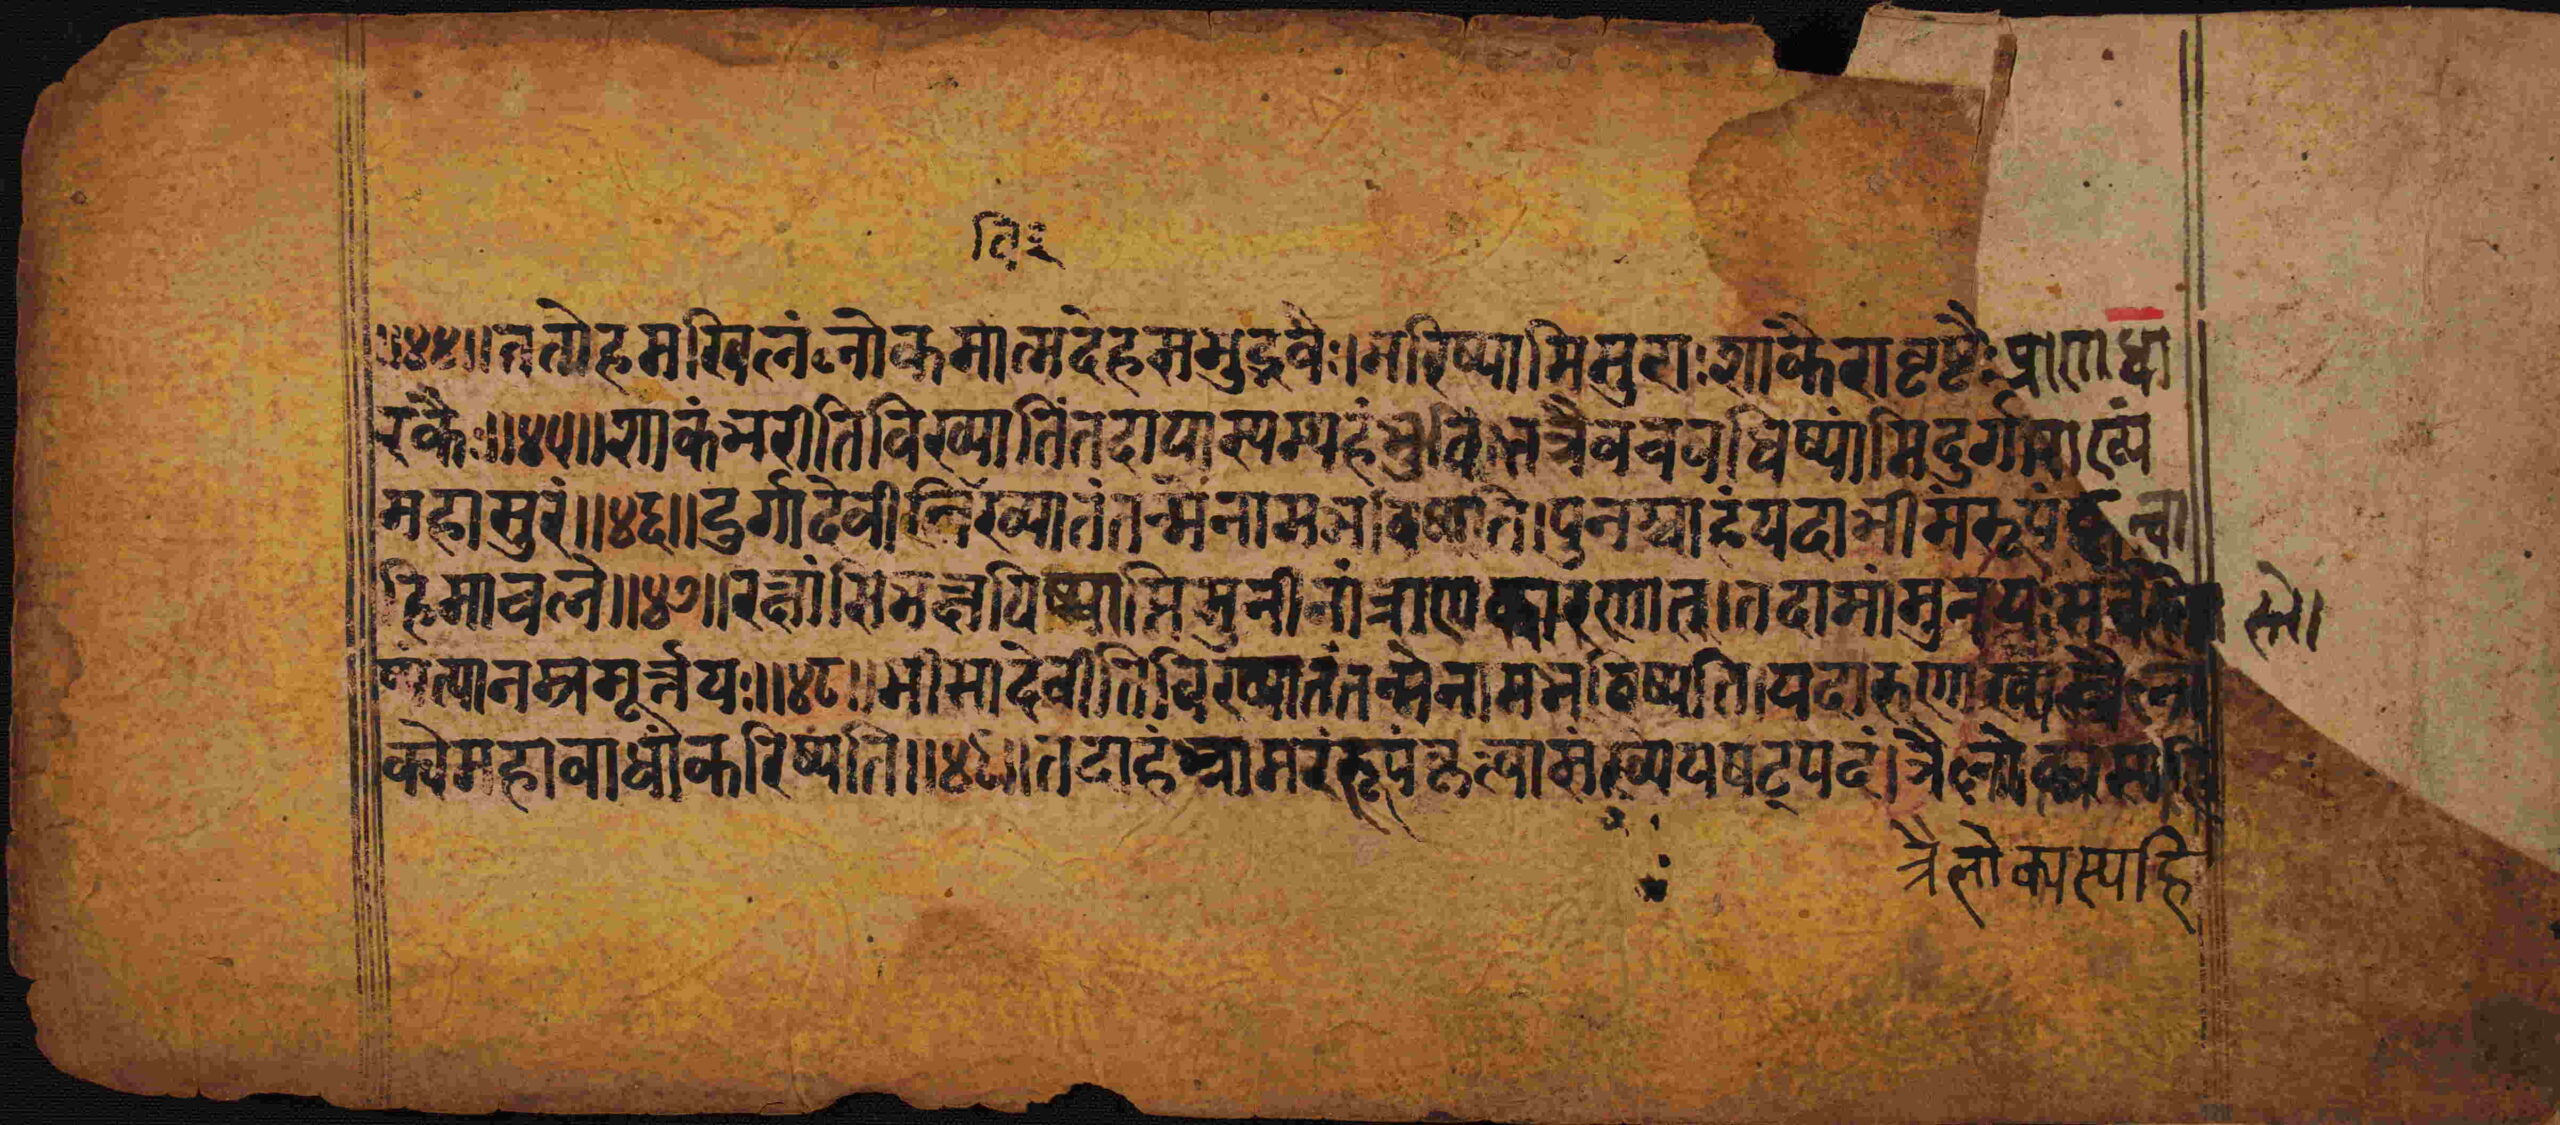 ॥४४॥ततोहमखिलंलोकमात्मदेहसमुद्भवैः।भरिष्यामिसुराःशाकैरावृष्टैःप्राणधा
रकैः॥४५॥शाकंभरीतिविख्यातिंतदायास्यम्यहंभुवि।तत्रैवचवधिष्यामिदुर्गमाख्यं
महासुरं॥४६॥दुर्गादेवीतिविख्यातंतन्मेनामभविष्यति।पुनश्चाहंयदाभीमंरूपंकृत्वा
हिमाचले॥४७॥रक्षांसिभक्षयिष्यामिमुनीनांत्राणकारणात्।तदामांमुनयःसर्वेस्तो
स्तो।
ष्यंत्यानम्रमूर्त्तयः॥४८॥भीमादेवीतिविख्यातंतन्मेनामभविष्यति।यदारुणाख्यस्त्रैलो
क्येमहाबाधांकरिष्यति॥४९॥तदाहंभ्रामरंरूपंकृत्वासंख्येयषट्पदं।त्रैलोक्यस्यहि
त्रैलोक्यस्यहि